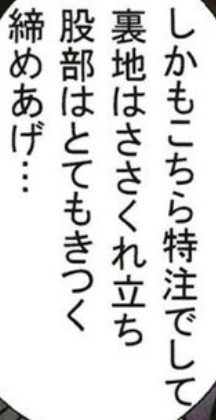 しかもこちら特注でして
裏地はささくれ立ち
股部はとてもきつく
締めあげ…